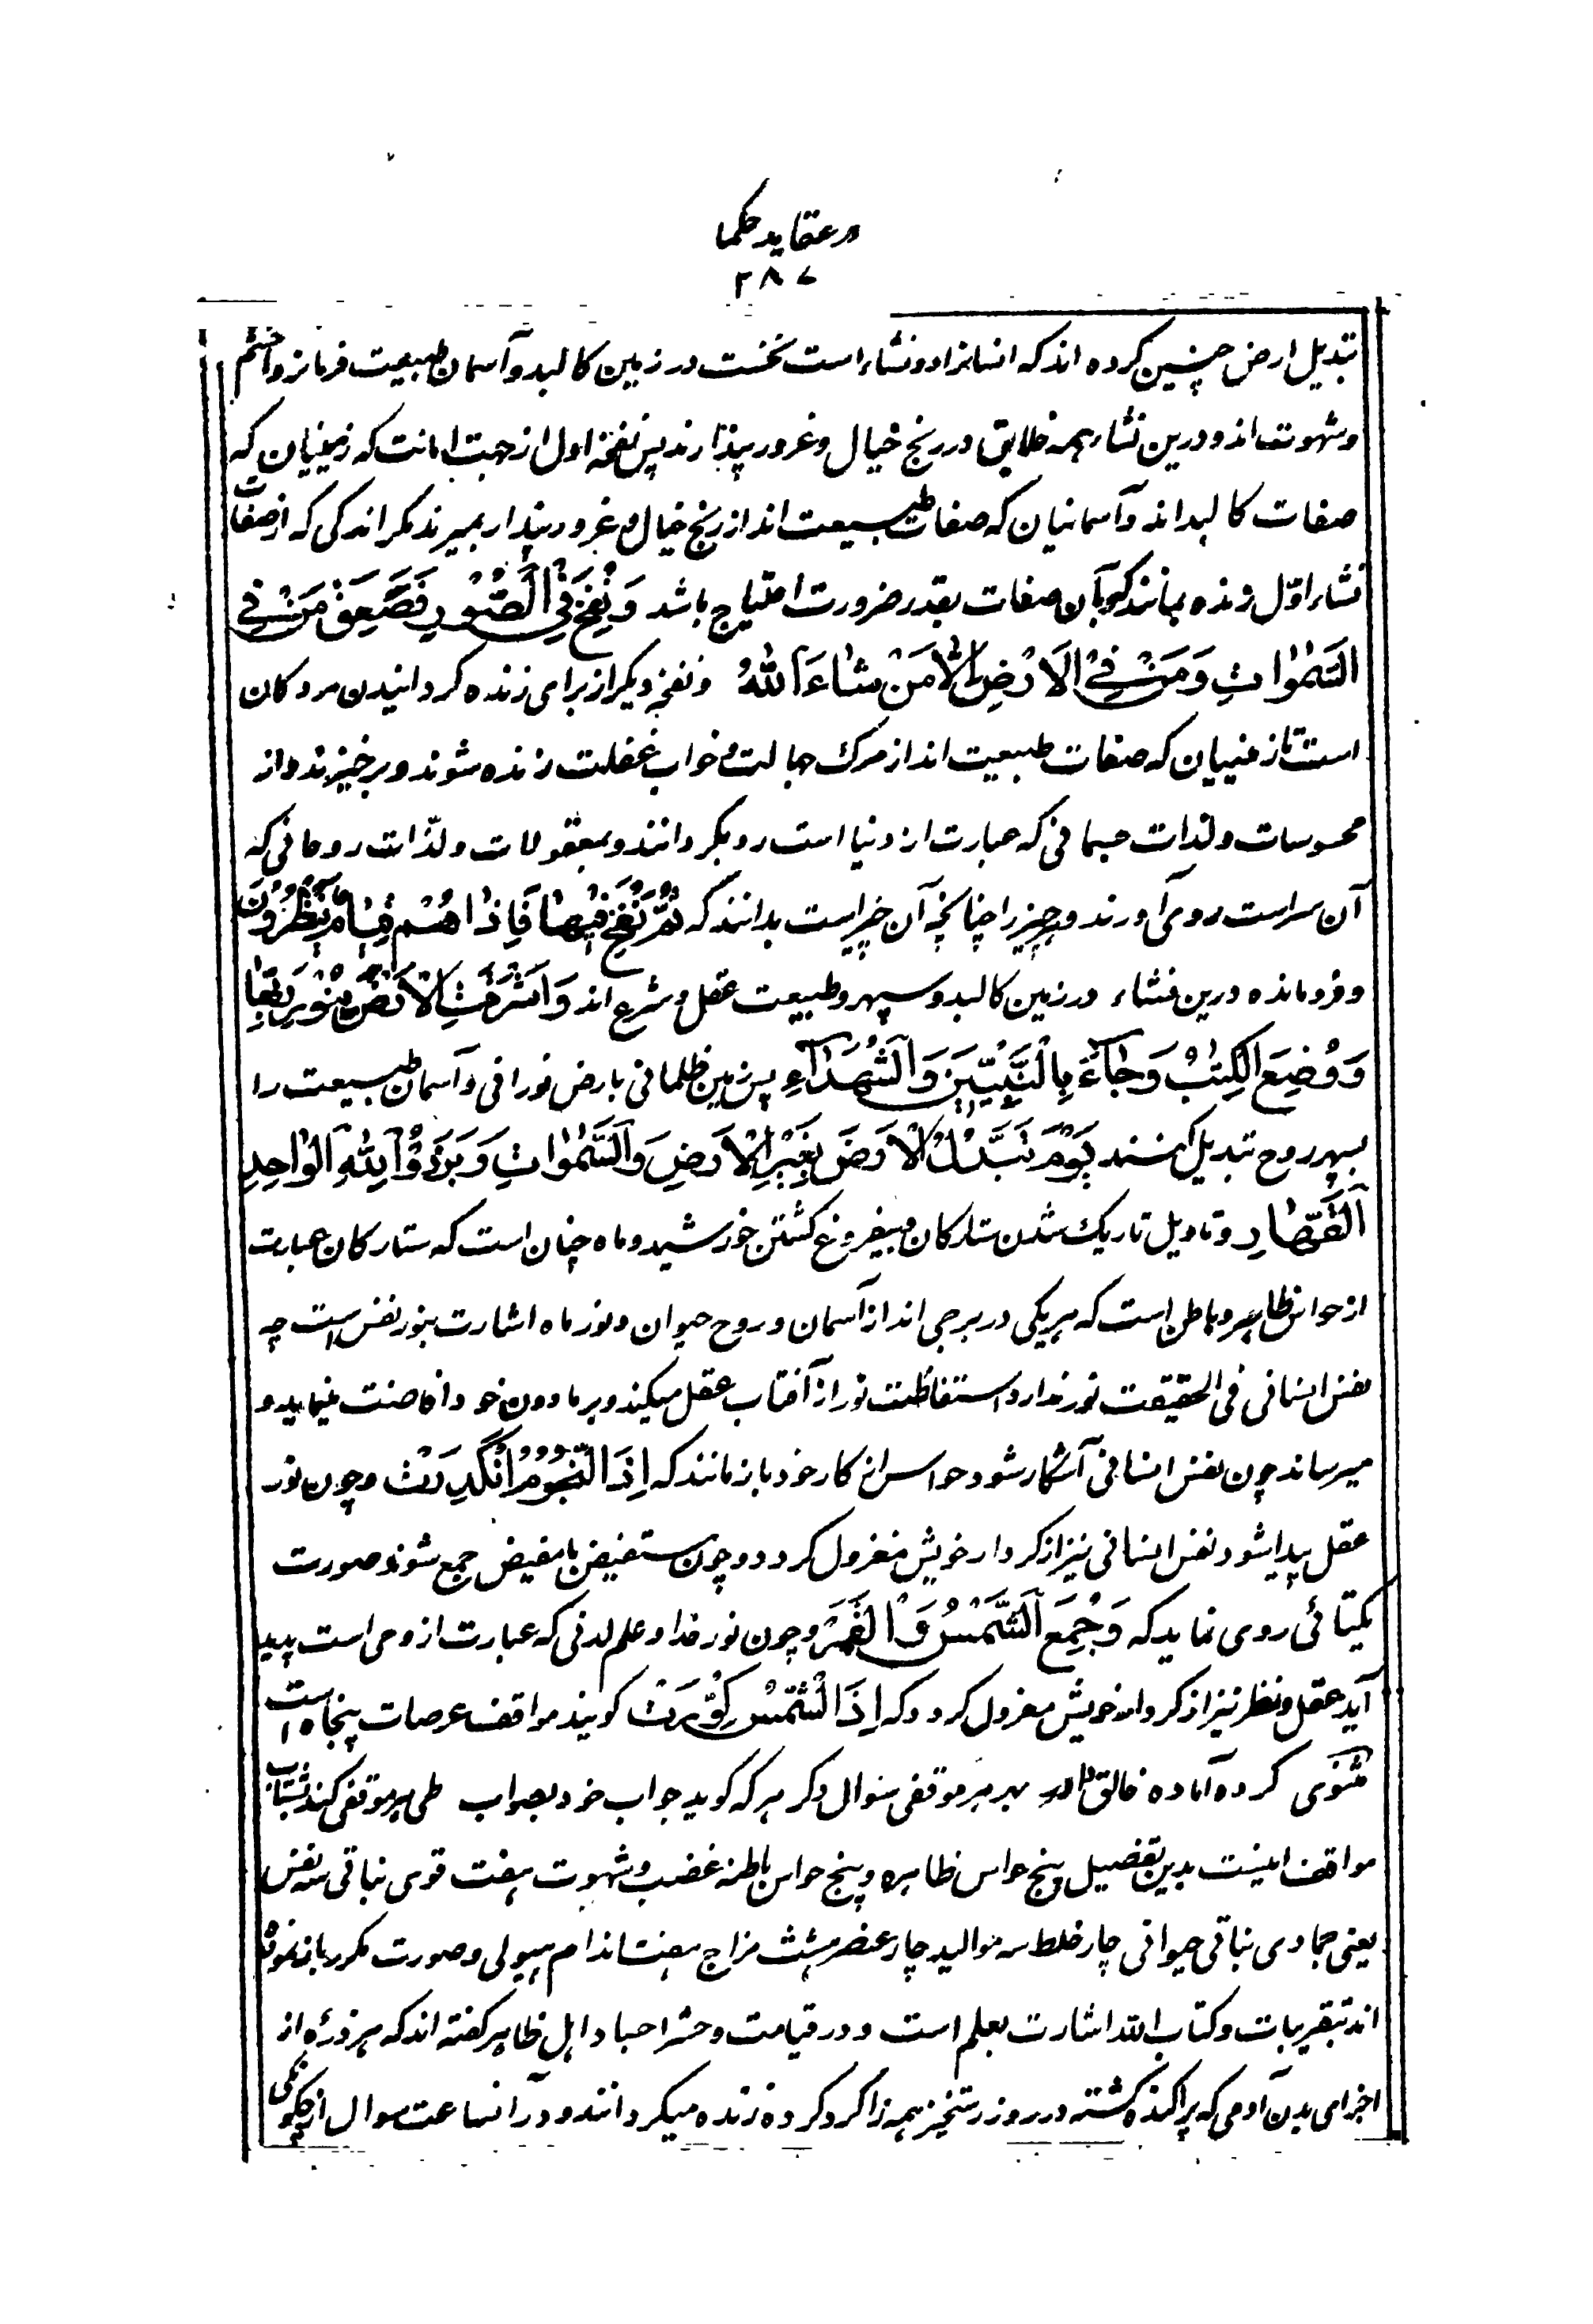 در عقاید حکما
۲۸۷
تبدیل ارض چنین کرده اند که انسانرا دو نشاء است نخست در زمین کالبد و آسمان طبیعت فرمانروا خشم
و شهوت اند و درین نشاء همه خلایق در رنج خیال و غرور پندارند پس نفخه اول از جهت امانت که زمینیان که
صفات کالبد اند و آسمانیان که صفات طبیعت اند از رنج خیال و غرور پندار بمیرند مگر اندکی که از صفات
نشاء اوّل زنده بمانند که بآن صفات بقدر ضرورت احتیاج باشد وَ نُفِخَ فِی الصُّورِ فَصَعِقَ مَنْ فِی
السَّمٰوٰاتِ وَ مَنْ فِی الْاَرْضِ اِلّٰا مَنْ شٰاءَ اللّٰهُ و نفخه دیگر از برای زنده گردانیدن مردگان
است تا زمینیان که صفات طبیعت اند از مرگ جهالت و خواب غفلت زنده شوند و برخیزند و از
محسوسات و لذات جسمانی که عبارت از دنیا است رو بگردانند و بمعقولات و لذّات روحانی که
آن سراست روی آورند و چیز را چنانچه آن چیز است بدانند که ثُمَّ نُفِخَ فِیهٰا فَاِذٰا هُمْ قِیٰامٌ یَنْظُرُونَ
و فرومانده درین نشاء در زمین کالبد و سپهر و طبیعت عقل و شرع اند وَ اَشْرَقَتِ الْاَرْضُ بِنُورِ رَبِّهٰا
وَ وُضِعَ الْکِتٰبُ وَ جٰاءَ بِالنَّبِیّینَ وَ الشُّهَدٰاءِ پس زمین ظلمانی بارض نورانی و آسمان طبیعت را
بسپهر روح تبدیل کنند یَوْمَ تُبَدَّلُ الْاَرْضَ بِغَیْرِ الْاَرْضِ وَ السَّمٰوٰاتِ وَ بَرَزُوا لِلّٰهِ الْوٰاحِدِ
الْقَهّٰارِ و تاویل تاریک شدن ستارگان و بیفروغ گشتن خورشید و ماه چنان است که ستارگان عبارت
از حواس ظاهر و باطن است که هریکی در برجی اند از آسمان و روح حیوان و نور ماه اشارت بنور نفس است چه
نفس انسانی فی الحقیقت نور ندارد استفاظت نور از آفتاب عقل میکند و بر مادون خود افاضت مینماید و
میرساند چون نفس انسانی آشکار شود حواس از کار خود باز مانند که اِذَا النُّجُومُ انْکَدَرَتْ و چون نور
عقل پیدا شود نفس انسانی نیز از کردار خویش معزول گردد و چون مستفیض با مفیض جمع شوند صورت
یکتائی روی نماید که وَ جُمِعَ الشَّمْسُ وَ الْقَمَرُ و چون نور خدا و علم لدنی که عبارت از وحی است پدید
آید عقل و نظر نیز از کردار خویش معزول گردد که اِذَا الشَّمْسُ کُوِّرَتْ گویند مواقف عرصات پنجاه است
مثنوی کرده آماده خالق بهر هر موقفی سئوال دگر هر که گوید جواب خود بصواب طی هر موقفی کند بشتاب
مواقف اینست بدین تفصیل پنج حواس ظاهره و پنج حواس باطنه غضب و شهوت هفت قوی نباتی سه نفس
یعنی جمادی نباتی حیوانی چار خلط سه موالید چار عنصر هشت مزاج هفت اندام هیولی و صورت مکرر باز نموده
اند بتقریبات و کتاب الله اشارت بعلم است و در قیامت و حشر اجساد اهل ظاهر گفته اند که هر ذرّه از
اجزای بدن آدمی که پراکنده گشته در روز رستخیز همه را گرد کرده زنده میگردانند و در آنساعت سوال از چگونگی